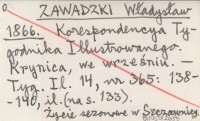 ZAWADZKI Władysław
1866. Korespondencya Ty-
godnika Illustrowanego.
Krynica, we wrześniu. —
Tyg. Il. 14, nr 365: 138-
-140, il. (na s. 133).
Życie sezonowe w Szczawnicy.